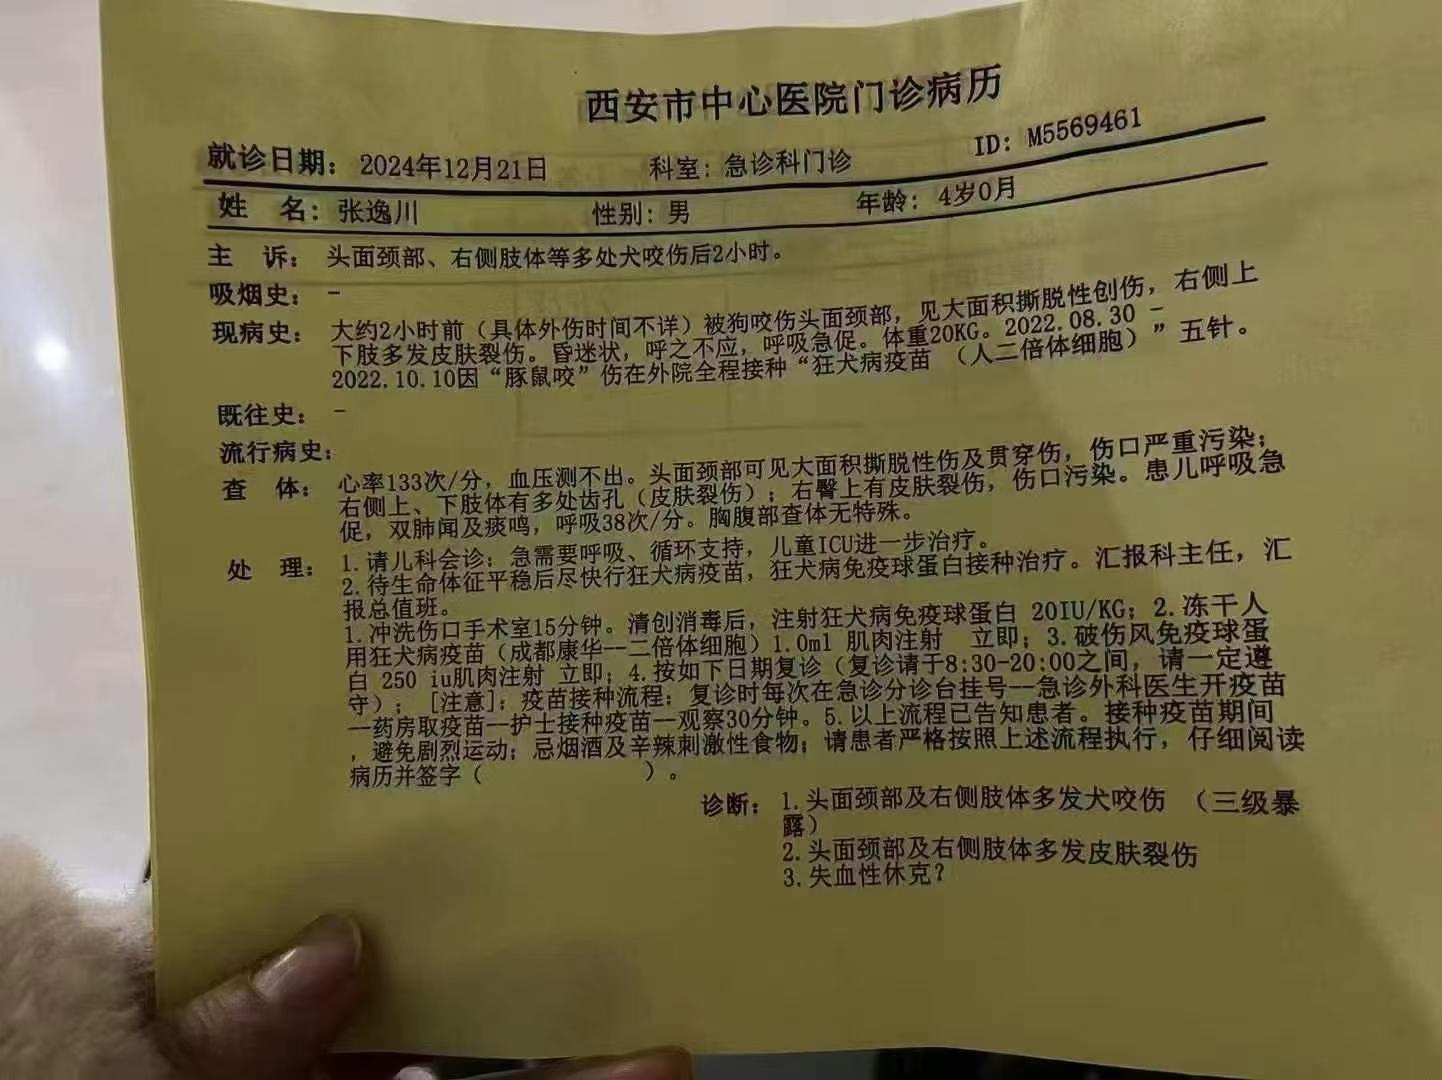 西安市中心医院门诊病历
就诊日期： 2024年12月21日 科室：急诊科门诊 ID: M5569461
姓 名：张逸川 性别：男 年龄：4岁0月
主 诉： 头面颈部、右侧肢体等多处犬咬伤后2小时。
吸烟史： -
现病史： 大约2小时前（具体外伤时间不详）被狗咬伤头面颈部，见大面积撕脱性创伤，右侧上
下肢多发皮肤裂伤。昏迷状，呼之不应，呼吸急促。体重20KG。2022.08.30 -
2022.10.10因“豚鼠咬”伤在外院全程接种“狂犬病疫苗 （人二倍体细胞）”五针。
既往史： -
流行病史：
查 体： 心率133次/分，血压测不出。头面颈部可见大面积撕脱性伤及贯穿伤，伤口严重污染；
右侧上、下肢体有多处齿孔（皮肤裂伤）；右臀上有皮肤裂伤，伤口污染。患儿呼吸急
促，双肺闻及痰鸣，呼吸38次/分。胸腹部查体无特殊。
处 理： 1.请儿科会诊：急需要呼吸、循环支持，儿童ICU进一步治疗。
2.待生命体征平稳后尽快行狂犬病疫苗，狂犬病免疫球蛋白接种治疗。汇报科主任，汇
报总值班。
1.冲洗伤口手术室15分钟。清创消毒后，注射狂犬病免疫球蛋白 20IU/KG；2.冻干人
用狂犬病疫苗（成都康华--二倍体细胞）1.0ml 肌肉注射 立即；3.破伤风免疫球蛋
白 250 iu肌肉注射 立即；4.按如下日期复诊（复诊请于8:30-20:00之间，请一定遵
守）； [注意]：疫苗接种流程：复诊时每次在急诊分诊台挂号--急诊外科医生开疫苗
—药房取疫苗—护士接种疫苗—观察30分钟。5.以上流程已告知患者。接种疫苗期间
，避免剧烈运动；忌烟酒及辛辣刺激性食物；请患者严格按照上述流程执行，仔细阅读
病历并签字（ ）。
诊断： 1.头面颈部及右侧肢体多发犬咬伤 （三级暴
露）
2.头面颈部及右侧肢体多发皮肤裂伤
3.失血性休克？